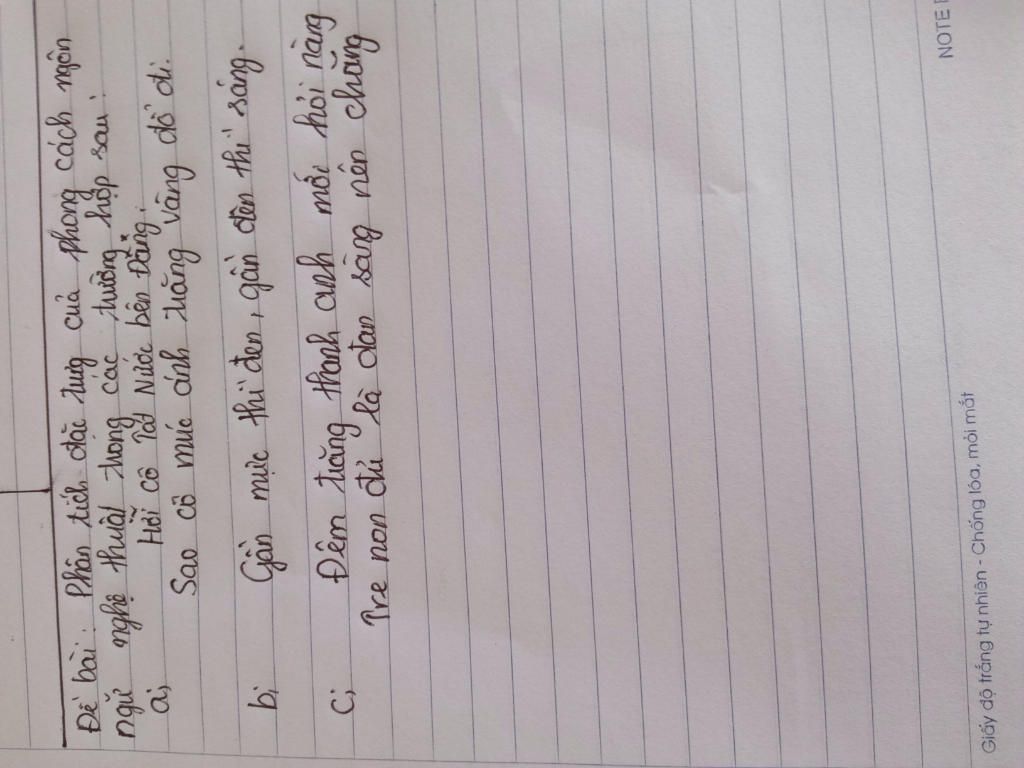 Đề bài: Phân tích đặc trưng của phong cách ngôn
ngữ nghệ thuật trong các trường hợp sau:
a,
Hỡi cô tát nước bên đàng.
Sao cô múc ánh trăng vàng đổ đi.
b, Gần mực thì đen, gần đèn thì sáng.
c, Đêm trăng thanh anh mới hỏi nàng
Tre non đủ lá đan sàng nên chăng
Giấy độ trắng tự nhiên - Chống lóa, mỏi mắt
NOTE